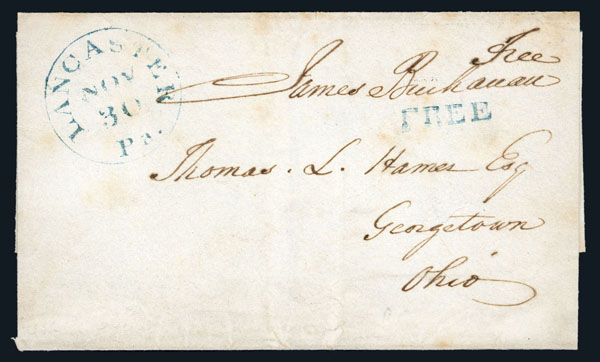 LANCASTER
NOV
30
Pa.
Free
James Buchanan
FREE
Thomas. L. Hamer Esq
Georgetown
Ohio